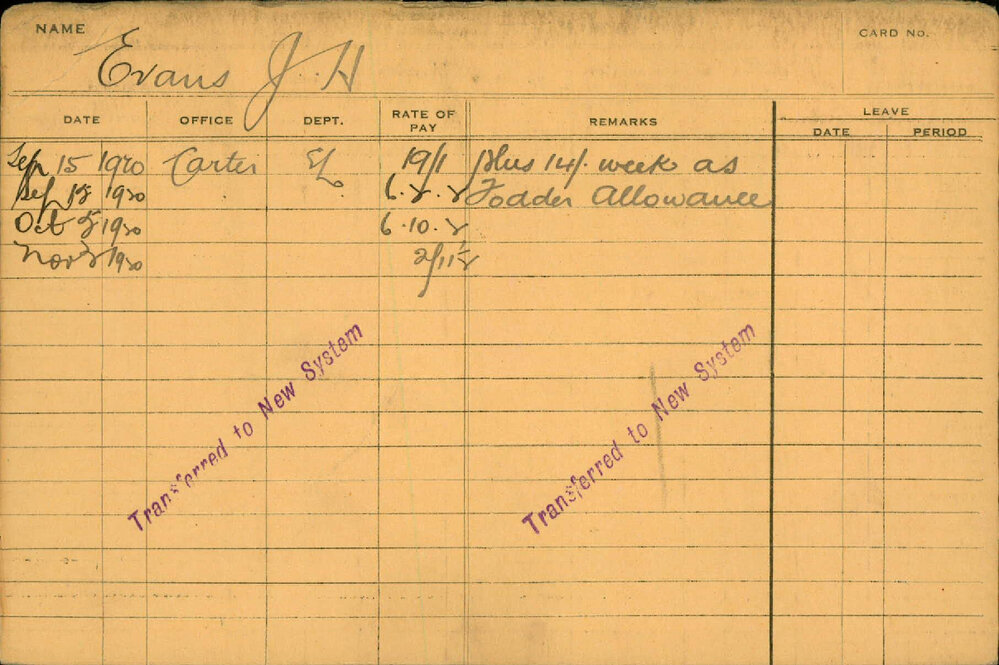 NAME
Evans J H
CARD No.
DATE OFFICE DEPT. RATE OF PAY REMARKS LEAVE
DATE PERIOD
Sep 15 1920 Carter 19/1 plus 14/. week as
Sep 1920 6. 2. 2 Fodder Allowance
Oct 1920 6. 10. 2
Nov 2 1920 2/11½
Transferred to New System
Transferred to New System